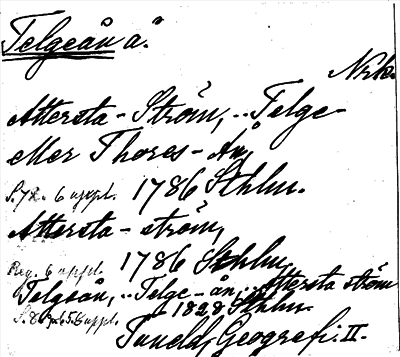 Telgeån å.
Nrk.
Attersta-Ström, .. Telge-
eller Thores-Ån,
S. 72. 6 uppl. 1786 Sthlm.
Attersta-ström,
Reg. 6 uppl. 1786 Sthlm.
Telgeån, .. Telge-ån, .. Attersta ström
6 uppl. 1828 Sthlm.
Tuneld, Geografi. II.